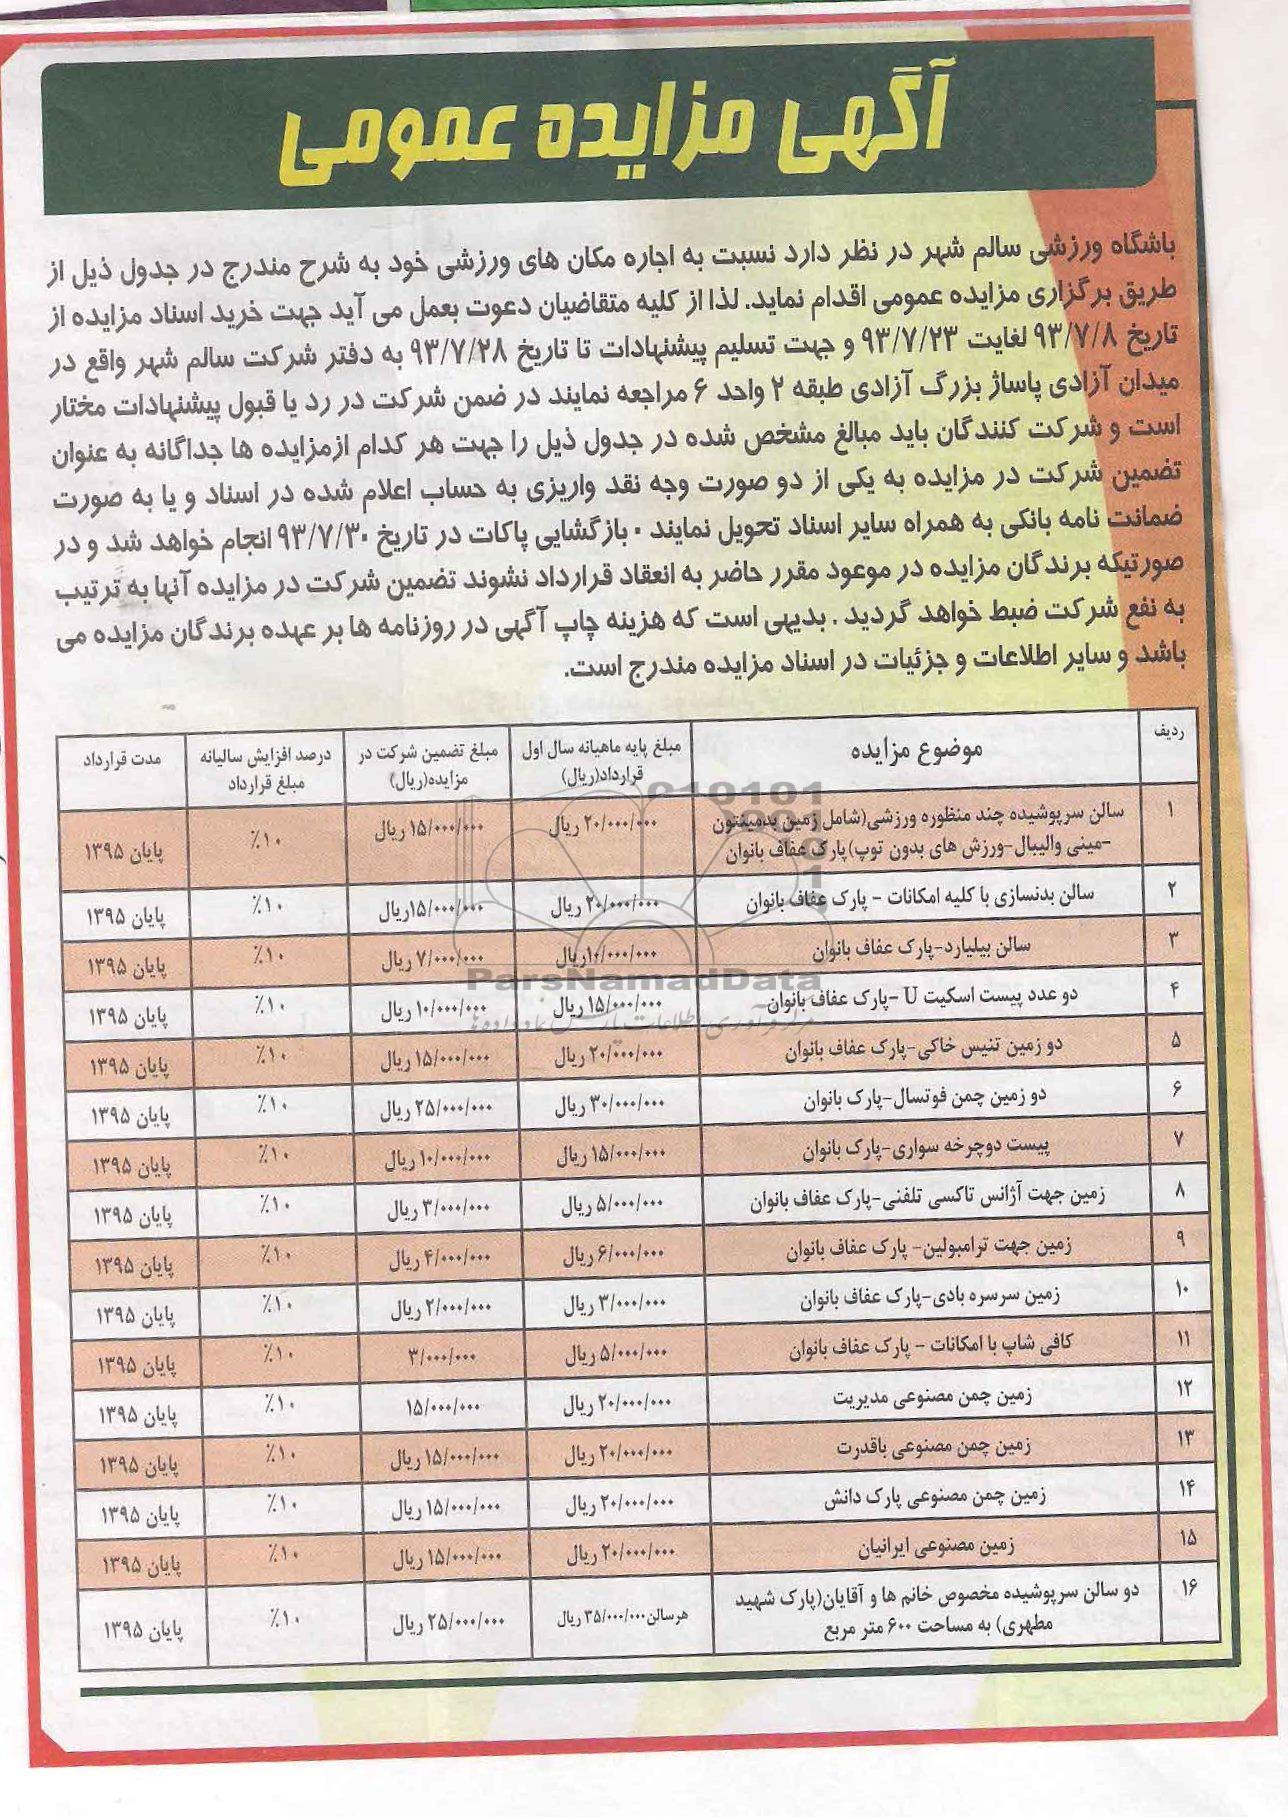 آگهی مزایده عمومی
باشگاه ورزشی سالم شهر در نظر دارد نسبت به اجاره مکان های ورزشی خود به شرح مندرج در جدول ذیل از
طریق برگزاری مزایده عمومی اقدام نماید. لذا از کلیه متقاضیان دعوت بعمل می آید جهت خرید اسناد مزایده از
تاریخ ۹۳/۷/۸ لغایت ۹۳/۷/۲۳ و جهت تسلیم پیشنهادات تا تاریخ ۹۳/۷/۲۸ به دفتر شرکت سالم شهر واقع در
میدان آزادی پاساژ بزرگ آزادی طبقه ۲ واحد ۶ مراجعه نمایند در ضمن شرکت در رد یا قبول پیشنهادات مختار
است و شرکت کنندگان باید مبالغ مشخص شده در جدول ذیل را جهت هر کدام ازمزایده ها جداگانه به عنوان
تضمین شرکت در مزایده به یکی از دو صورت وجه نقد واریزی به حساب اعلام شده در اسناد و یا به صورت
ضمانت نامه بانکی به همراه سایر اسناد تحویل نمایند ۰ بازگشایی پاکات در تاریخ ۹۳/۷/۳۰ انجام خواهد شد و در
صورتیکه برندگان مزایده در موعود مقرر حاضر به انعقاد قرارداد نشوند تضمین شرکت در مزایده آنها به ترتیب
به نفع شرکت ضبط خواهد گردید . بدیهی است که هزینه چاپ آگهی در روزنامه ها بر عهده برندگان مزایده می
باشد و سایر اطلاعات و جزئیات در اسناد مزایده مندرج است.
ردیف موضوع مزایده مبلغ پایه ماهیانه سال اول قرارداد(ریال) مبلغ تضمین شرکت در مزایده(ریال) درصد افزایش سالیانه مبلغ قرارداد مدت قرارداد
۱ سالن سرپوشیده چند منظوره ورزشی(شامل زمین بدمینتون -مینی والیبال-ورزش های بدون توپ)پارک عفاف بانوان ۲۰/۰۰۰/۰۰۰ ریال ۱۵/۰۰۰/۰۰۰ ریال ٪۱۰ پایان ۱۳۹۵
۲ سالن بدنسازی با کلیه امکانات - پارک عفاف بانوان ۲۰/۰۰۰/۰۰۰ ریال ۱۵/۰۰۰/۰۰۰ریال ٪۱۰ پایان ۱۳۹۵
۳ سالن بیلیارد-پارک عفاف بانوان ۱۰/۰۰۰/۰۰۰ریال ۷/۰۰۰/۰۰۰ ریال ٪۱۰ پایان ۱۳۹۵
۴ دو عدد پیست اسکیت U -پارک عفاف بانوان ۱۵/۰۰۰/۰۰۰ ریال ۱۰/۰۰۰/۰۰۰ ریال ٪۱۰ پایان ۱۳۹۵
۵ دو زمین تنیس خاکی-پارک عفاف بانوان ۲۰/۰۰۰/۰۰۰ ریال ۱۵/۰۰۰/۰۰۰ ریال ٪۱۰ پایان ۱۳۹۵
۶ دو زمین چمن فوتسال-پارک بانوان ۳۰/۰۰۰/۰۰۰ ریال ۲۵/۰۰۰/۰۰۰ ریال ٪۱۰ پایان ۱۳۹۵
۷ پیست دوچرخه سواری-پارک بانوان ۱۵/۰۰۰/۰۰۰ ریال ۱۰/۰۰۰/۰۰۰ ریال ٪۱۰ پایان ۱۳۹۵
۸ زمین جهت آژانس تاکسی تلفنی-پارک عفاف بانوان ۵/۰۰۰/۰۰۰ ریال ۳/۰۰۰/۰۰۰ ریال ٪۱۰ پایان ۱۳۹۵
۹ زمین جهت ترامبولین- پارک عفاف بانوان ۶/۰۰۰/۰۰۰ ریال ۴/۰۰۰/۰۰۰ ریال ٪۱۰ پایان ۱۳۹۵
۱۰ زمین سرسره بادی-پارک عفاف بانوان ۳/۰۰۰/۰۰۰ ریال ۲/۰۰۰/۰۰۰ ریال ٪۱۰ پایان ۱۳۹۵
۱۱ کافی شاپ با امکانات - پارک عفاف بانوان ۵/۰۰۰/۰۰۰ ریال ۳/۰۰۰/۰۰۰ ٪۱۰ پایان ۱۳۹۵
۱۲ زمین چمن مصنوعی مدیریت ۲۰/۰۰۰/۰۰۰ ریال ۱۵/۰۰۰/۰۰۰ ٪۱۰ پایان ۱۳۹۵
۱۳ زمین چمن مصنوعی باقدرت ۲۰/۰۰۰/۰۰۰ ریال ۱۵/۰۰۰/۰۰۰ ریال ٪۱۰ پایان ۱۳۹۵
۱۴ زمین چمن مصنوعی پارک دانش ۲۰/۰۰۰/۰۰۰ ریال ۱۵/۰۰۰/۰۰۰ ریال ٪۱۰ پایان ۱۳۹۵
۱۵ زمین مصنوعی ایرانیان ۲۰/۰۰۰/۰۰۰ ریال ۱۵/۰۰۰/۰۰۰ ریال ٪۱۰ پایان ۱۳۹۵
۱۶ دو سالن سرپوشیده مخصوص خانم ها و آقایان(پارک شهید مطهری) به مساحت ۶۰۰ متر مربع هرسالن۳۵/۰۰۰/۰۰۰ ریال ۲۵/۰۰۰/۰۰۰ ریال ٪۱۰ پایان ۱۳۹۵
ParsNamadData